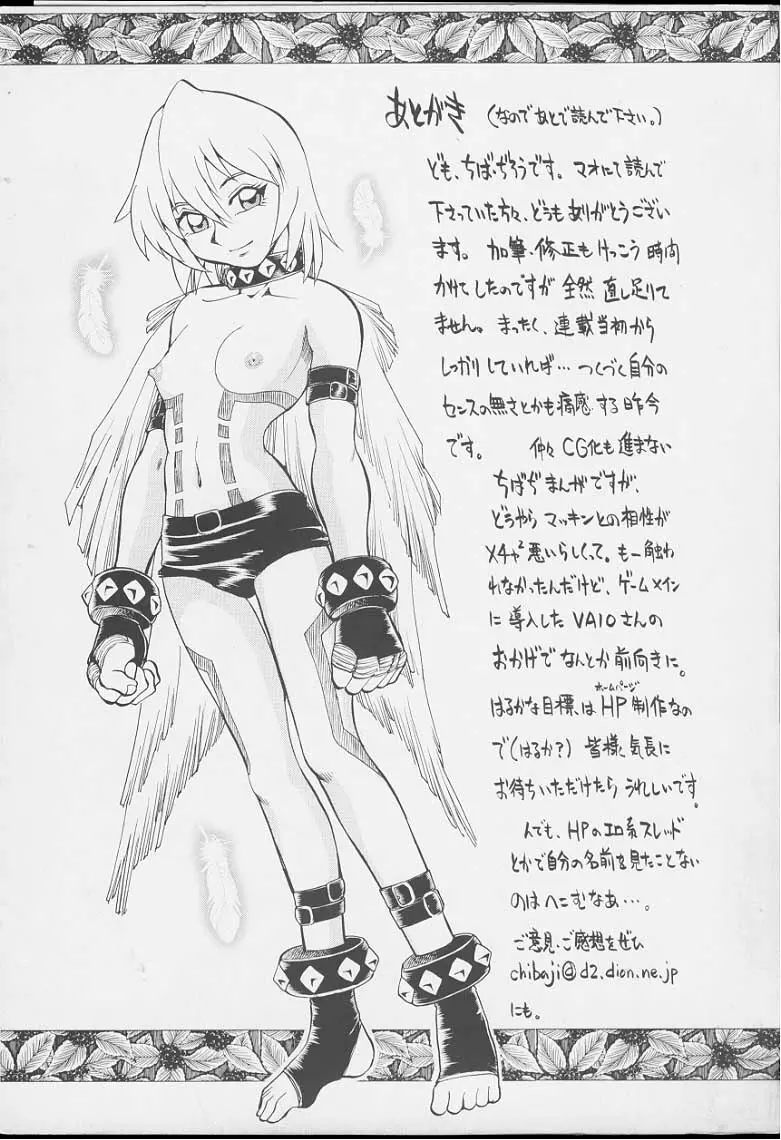 あとがき (なのであとで読んで下さい。)
ども、ちば・ぢろうです。マオにて読んで
下さっていた方々、どうもありがとうござい
ます。加筆・修正もけっこう時間
かけてしたのですが全然直し足りて
ません。まったく、連載当初から
しっかりしていれば…つくづく自分の
センスの無さとかも痛感する昨今
です。 仲々CG化も進まない
ちばぢまんがですが、
どうやらマッキンとの相性が
メチャ²悪いらしくって。も一触わ
れなかったんだけど、ゲームメイン
に導入したVAIOさんの
おかげでなんとか前向きに。
ホームページ
はるかな目標、はHP制作なの
で(はるか?)皆様、気長に
お待ちいただけたらうれしいです。
んでも、HPのエロ系スレッド
とかで自分の名前を見たことない
のはへこむなあ…。
ご意見・ご感想をぜひ
chibaji@d2.dion.ne.jp
にも。